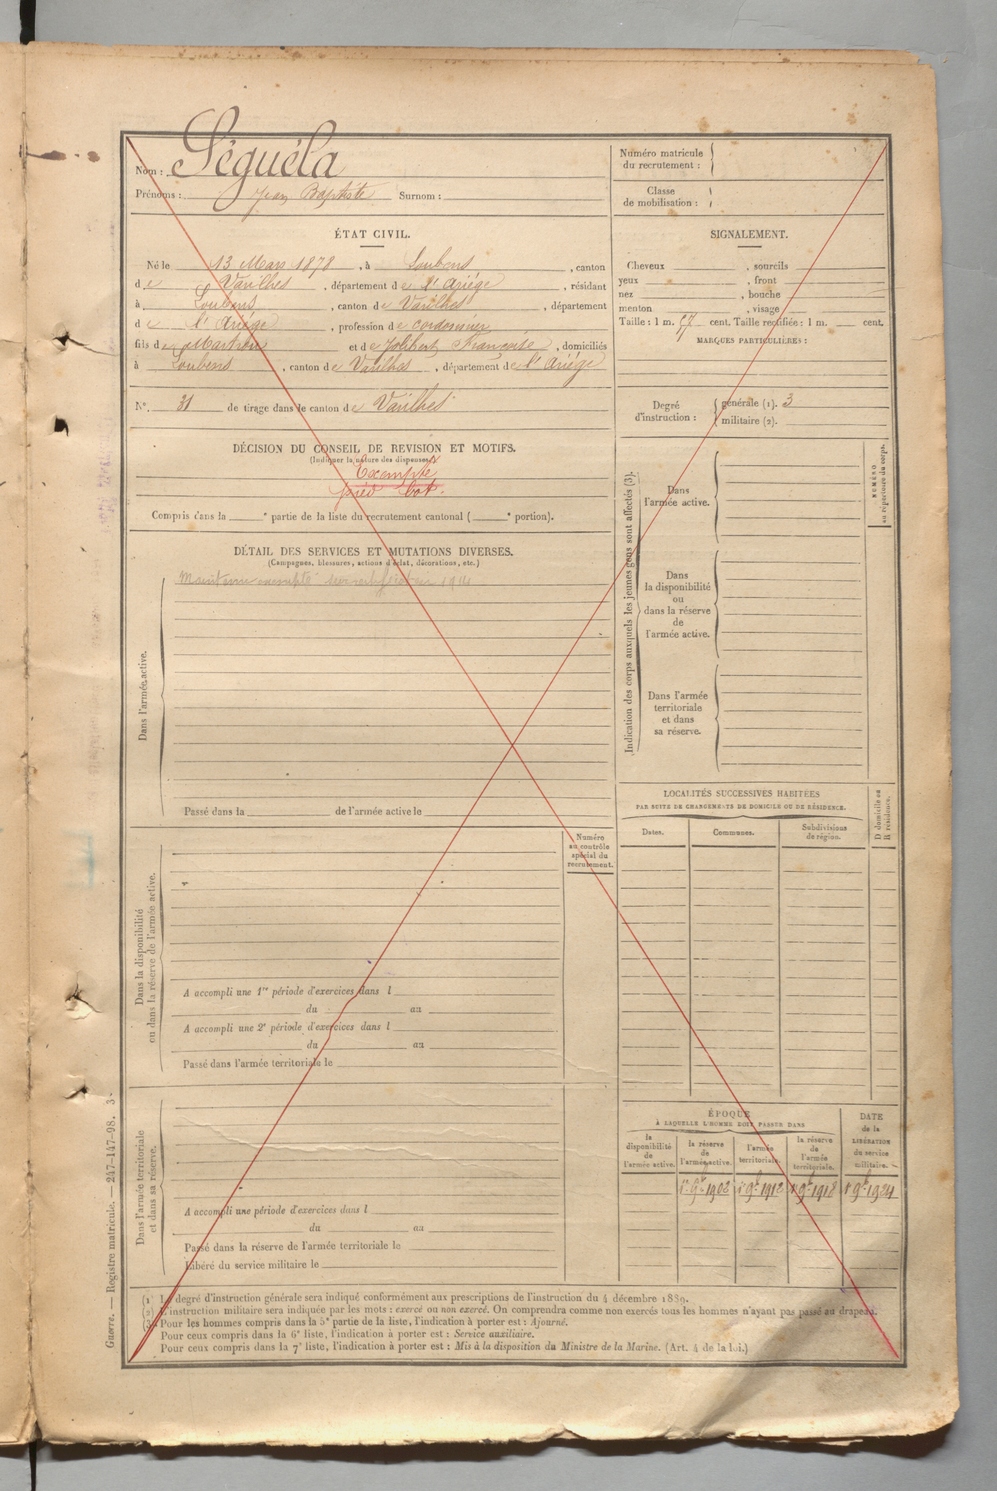 Nom : Séguéla
Prénoms : Jean Baptiste Surnom :
Numéro matricule du recrutement :
Classe de mobilisation :
ÉTAT CIVIL.
Né le 13 Mars 1878, à Loubens, canton
de Varilhes, département de l'Ariége, résidant
à Loubens, canton de Varilhes, département
de l'Ariége, profession de cordonnier
fils de Martin et de Jolibert Françoise, domiciliés
à Loubens, canton de Varilhes, département de l'Ariége
N° 31 de tirage dans le canton de Varilhes
SIGNALEMENT.
Cheveux , sourcils
yeux , front
nez , bouche
menton , visage
Taille : 1 m. 57 cent. Taille rectifiée : 1 m. cent.
MARQUES PARTICULIÈRES :
Degré d'instruction : générale (1). 3
militaire (2).
DÉCISION DU CONSEIL DE REVISION ET MOTIFS.
(Indiquer la nature des dispenses)
Exempté
pied bot.
Compris dans la e partie de la liste du recrutement cantonal ( e portion).
DÉTAIL DES SERVICES ET MUTATIONS DIVERSES.
(Campagnes, blessures, actions d'éclat, décorations, etc.)
Maintenu exempté 1914
Dans l'armée active.
Passé dans la de l'armée active le
Indication des corps auxquels les jeunes gens sont affectés (3).
NUMÉRO au répertoire du corps.
Dans l'armée active.
Dans la disponibilité ou dans la réserve de l'armée active.
Dans l'armée territoriale et dans sa réserve.
LOCALITÉS SUCCESSIVES HABITÉES
PAR SUITE DE CHANGEMENTS DE DOMICILE OU DE RÉSIDENCE.
Dates. Communes. Subdivisions de région. D domicile ou R résidence.
Numéro au contrôle spécial du recrutement.
Dans la disponibilité ou dans la réserve de l'armée active.
A accompli une 1re période d'exercices dans l
du au
A accompli une 2e période d'exercices dans l
du au
Passé dans l'armée territoriale le
Dans l'armée territoriale et dans sa réserve.
A accompli une période d'exercices dans l
du au
Passé dans la réserve de l'armée territoriale le
Libéré du service militaire le
ÉPOQUE
À LAQUELLE L'HOMME DOIT PASSER DANS
la disponibilité de l'armée active. la réserve de l'armée active. l'armée territoriale. la réserve de l'armée territoriale. DATE de la LIBÉRATION du service militaire.
1er 9bre 1902 1er 9bre 1912 1er 9bre 1918 1er 9bre 1924
(1) Le degré d'instruction générale sera indiqué conformément aux prescriptions de l'instruction du 4 décembre 1889.
(2) L'instruction militaire sera indiquée par les mots : exercé ou non exercé. On comprendra comme non exercés tous les hommes n'ayant pas passé au drapeau.
(3) Pour les hommes compris dans la 5e partie de la liste, l'indication à porter est : Ajourné.
Pour ceux compris dans la 6e liste, l'indication à porter est : Service auxiliaire.
Pour ceux compris dans la 7e liste, l'indication à porter est : Mis à la disposition du Ministre de la Marine. (Art. 4 de la loi.)
Guerre. — Registre matricule. — 247-147-98. 3